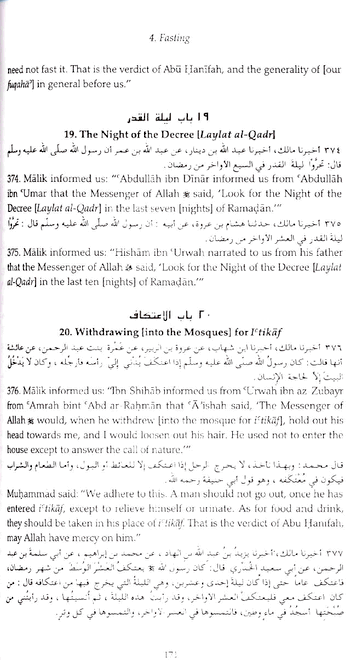 4. Fasting
need not fast it. That is the verdict of Abū Ḥanīfah, and the generality of [our
fuqahā'] in general before us."
١٩ باب ليلة القدر
19. The Night of the Decree [Laylat al-Qadr]
٣٧٤ أخبرنا مالك، أخبرنا عبد الله بن دينار، عن عبد الله بن عمر أن رسول الله صلّى الله عليه وسلّم
قال: تحرَّوْا ليلة القدر في السبع الأواخر من رمضان.
374. Mālik informed us: "'Abdullāh ibn Dīnār informed us from 'Abdullāh
ibn 'Umar that the Messenger of Allah ﷺ said, 'Look for the Night of the
Decree [Laylat al-Qadr] in the last seven [nights] of Ramaḍān.'"
٣٧٥ أخبرنا مالك، حدثنا هشام بن عروة، عن أبيه : أن رسول الله صلّى الله عليه وسلّم قال : تحرَّوْا
ليلة القدر في العشر الأواخر من رمضان.
375. Mālik informed us: "Hishām ibn 'Urwah narrated to us from his father
that the Messenger of Allah ﷺ said, 'Look for the Night of the Decree [Laylat
al-Qadr] in the last ten [nights] of Ramaḍān.'"
٢٠ باب الاعتكاف
20. Withdrawing [into the Mosques] for I'tikāf
٣٧٦ أخبرنا مالك، أخبرنا ابن شهاب، عن عروة بن الزبير، عن عَمْرة بنت عبد الرحمن، عن عائشة
أنها قالت: كان رسولُ الله صلّى الله عليه وسلّم إذا اعتكف يُدْني إليّ رأسَه فأرجّله، وكان لا يَدْخُلُ
البيتَ إلاّ لحاجة الإنسان.
376. Mālik informed us: "Ibn Shihāb informed us from 'Urwah ibn az-Zubayr
from 'Amrah bint 'Abd ar-Raḥmān that 'Ā'ishah said, 'The Messenger of
Allah ﷺ would, when he withdrew [into the mosque for i'tikāf], hold out his
head towards me, and I would loosen out his hair. He used not to enter the
house except to answer the call of nature.'"
قال محمد: وبهذا نأخذ، لا يخرج الرجل إذا اعتكف إلا للغائط أو البول، وأما الطعام والشراب
فيكون في مُعْتَكفه، وهو قول أبي حنيفة رحمه الله.
Muḥammad said: "We adhere to this. A man should not go out, once he has
entered i'tikāf, except to relieve himself or urinate. As for food and drink,
they should be taken in his place of i'tikāf. That is the verdict of Abū Ḥanīfah,
may Allah have mercy on him."
٣٧٧ أخبرنا مالك، أخبرنا يزيدُ بنُ عبد الله بن الهاد، عن محمد بن إبراهيم، عن أبي سلمة بن عبد
الرحمن، عن أبي سعيد الخُدْري قال: كان رسول الله ﷺ يعتكفُ العَشْرَ الوُسُطَ من شهر رمضان،
فاعتكف عاماً حتى إذا كان ليلة إحدى وعشرين، وهي الليلةُ التي يخرج فيها من اعتكافه قال : من
كان اعتكف معي فليعتكفْ العشرَ الأواخر، وقد رأيتُ هذه الليلةَ، ثم أُنسيتُها، وقد رأيتُني من
صُبْحَتِها أسجُدُ في ماءٍ وطين، فالتمسوها في العشر الأواخر، والتمسوها في كل وتر.